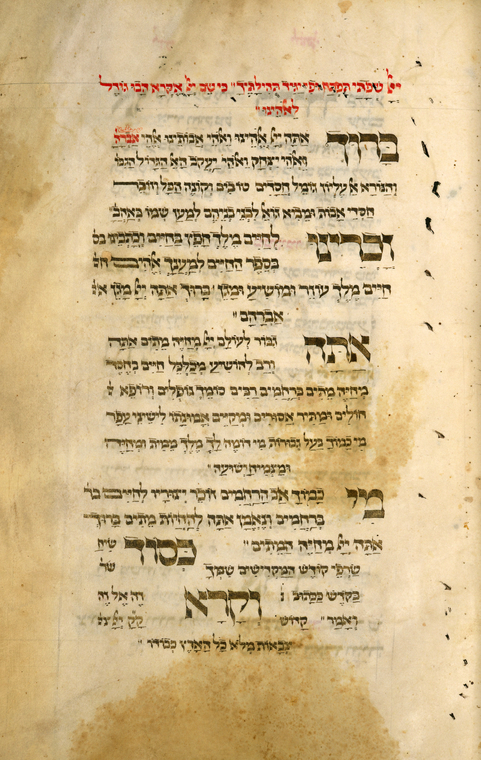 יי שפתי תפתח ופי יגיד תהילתיך״ כי שם יי אקרא הבו גודל
לאהינו״
ברוך אתה יי אהינו ואהי אבותינו אהי אברה׳
ואהי יצחק ואהי יעקב האֵ הגדול הגבו׳
והנורא אֵ עליון גומל חסדים טובים וקונה הכל וזוכר
חסדי אבות ומביא גואל לבני בניהם למען שמו באהב׳
זכריני לחיים מלך חפץ בחיים וכתבינו בס
בספר החיים למענך אהים ח
חיים מלך עוזר ומושיע ומגן״ ברוך אתה יי מגן א
אברהם״
אתה גבור לעולם יי מחיה מתים אתה
ורב להושיע מכלכל חיים בחסד
מחיה מתים ברחמים רבים סומך נופלים ורופא
חולים ומתיר אסורים ומקיים אמונתו לישיני עפר
מי כמוך בעל גבורות ומי דומה לך מלך ממית ומחיה
ומצמיח ישועה״
מי כמוך אב הרחמים זוכר יצוריו לחיים בר
ברחמים ונאמן אתה להחיות מתים ברוך
אתה יי מחיה המתים״ כסוד שיח
שרפי קודש המקדישים שמך של
בקדש ככתוב וקרא זה אל זה
ואמר״ קדוש קק יי צ
צבאות מלא כל הארץ כבודו״